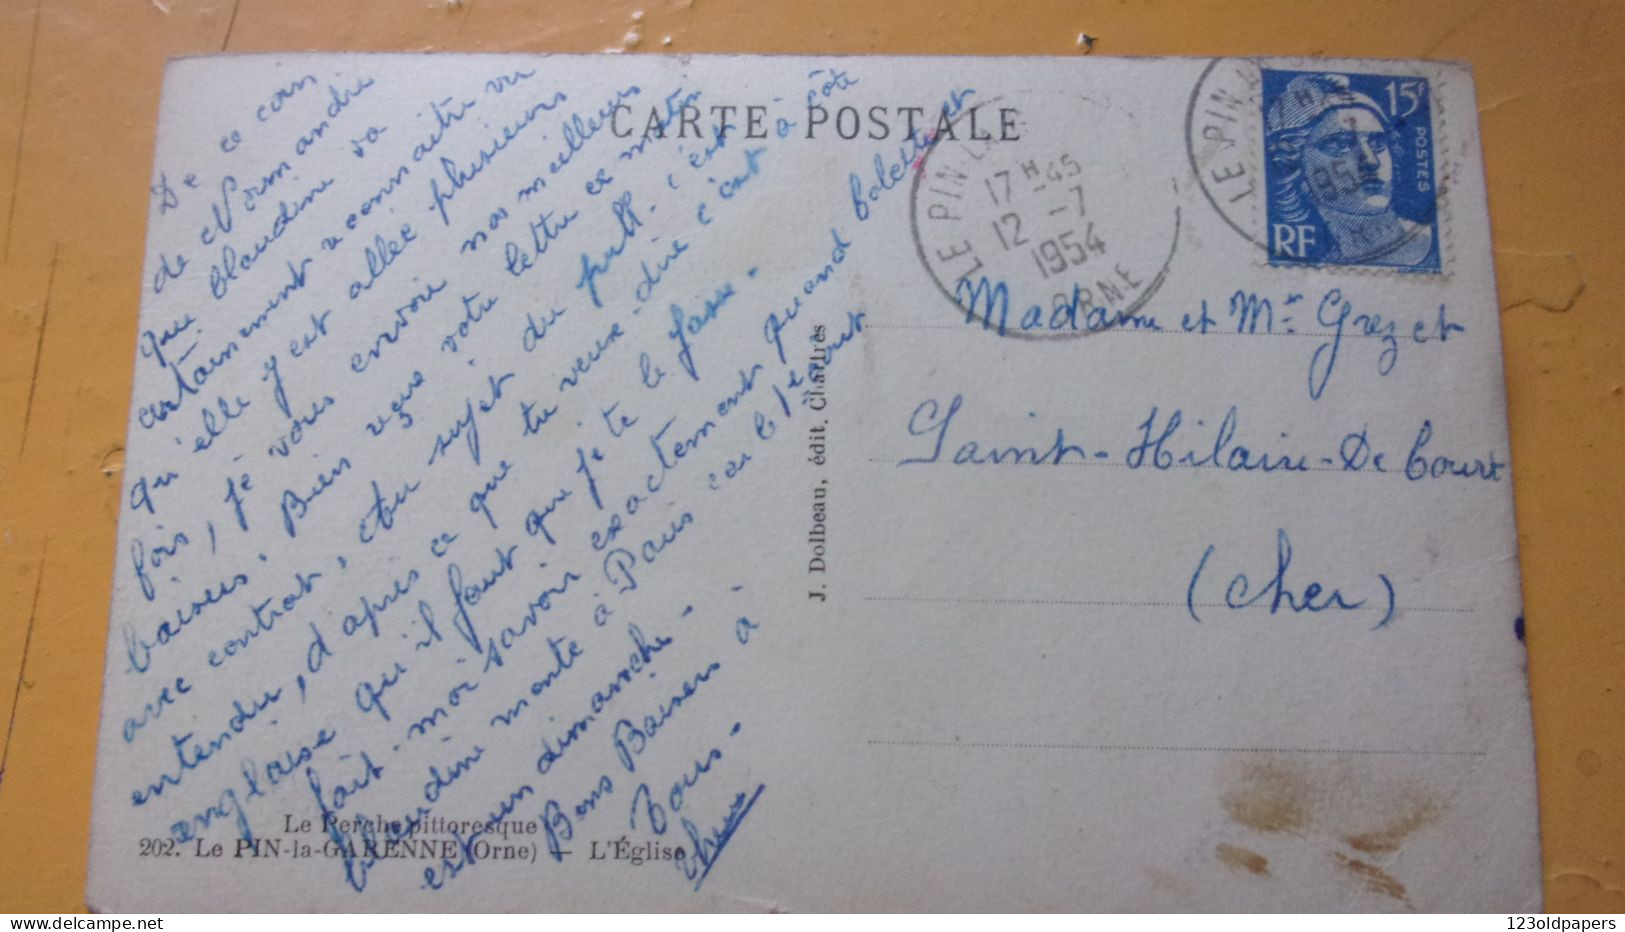 CARTE POSTALE
De ce coin
de Normandie
que Claudine va
certainement reconnaître vu
qu'elle y est allée plusieurs
fois, je vous envoie nos meilleurs
baisers. Bien reçu votre lettre ce matin
avec contrat, au sujet du pull. c'est
entendu, d'après ce que tu veux-dire c'est à côte
anglaise qu'il faut que je te le fasse-
fait-moi savoir exactement quand Colette et
Claudine monte à Paris car le 1er août
est un dimanche-
Bons Baisers à
Tous-
LE PIN-LA
17H-45
12 -7
1954
ORNE
LE PIN
1954
15F
POSTES
RF
Madame et Mr Grezet
Saint-Hilaire-De Court
(Cher)
J. Dolbeau, édit. Chartres
Le Perche pittoresque
202. Le PIN-la-GARENNE (Orne) — L'Église
123oldpapers